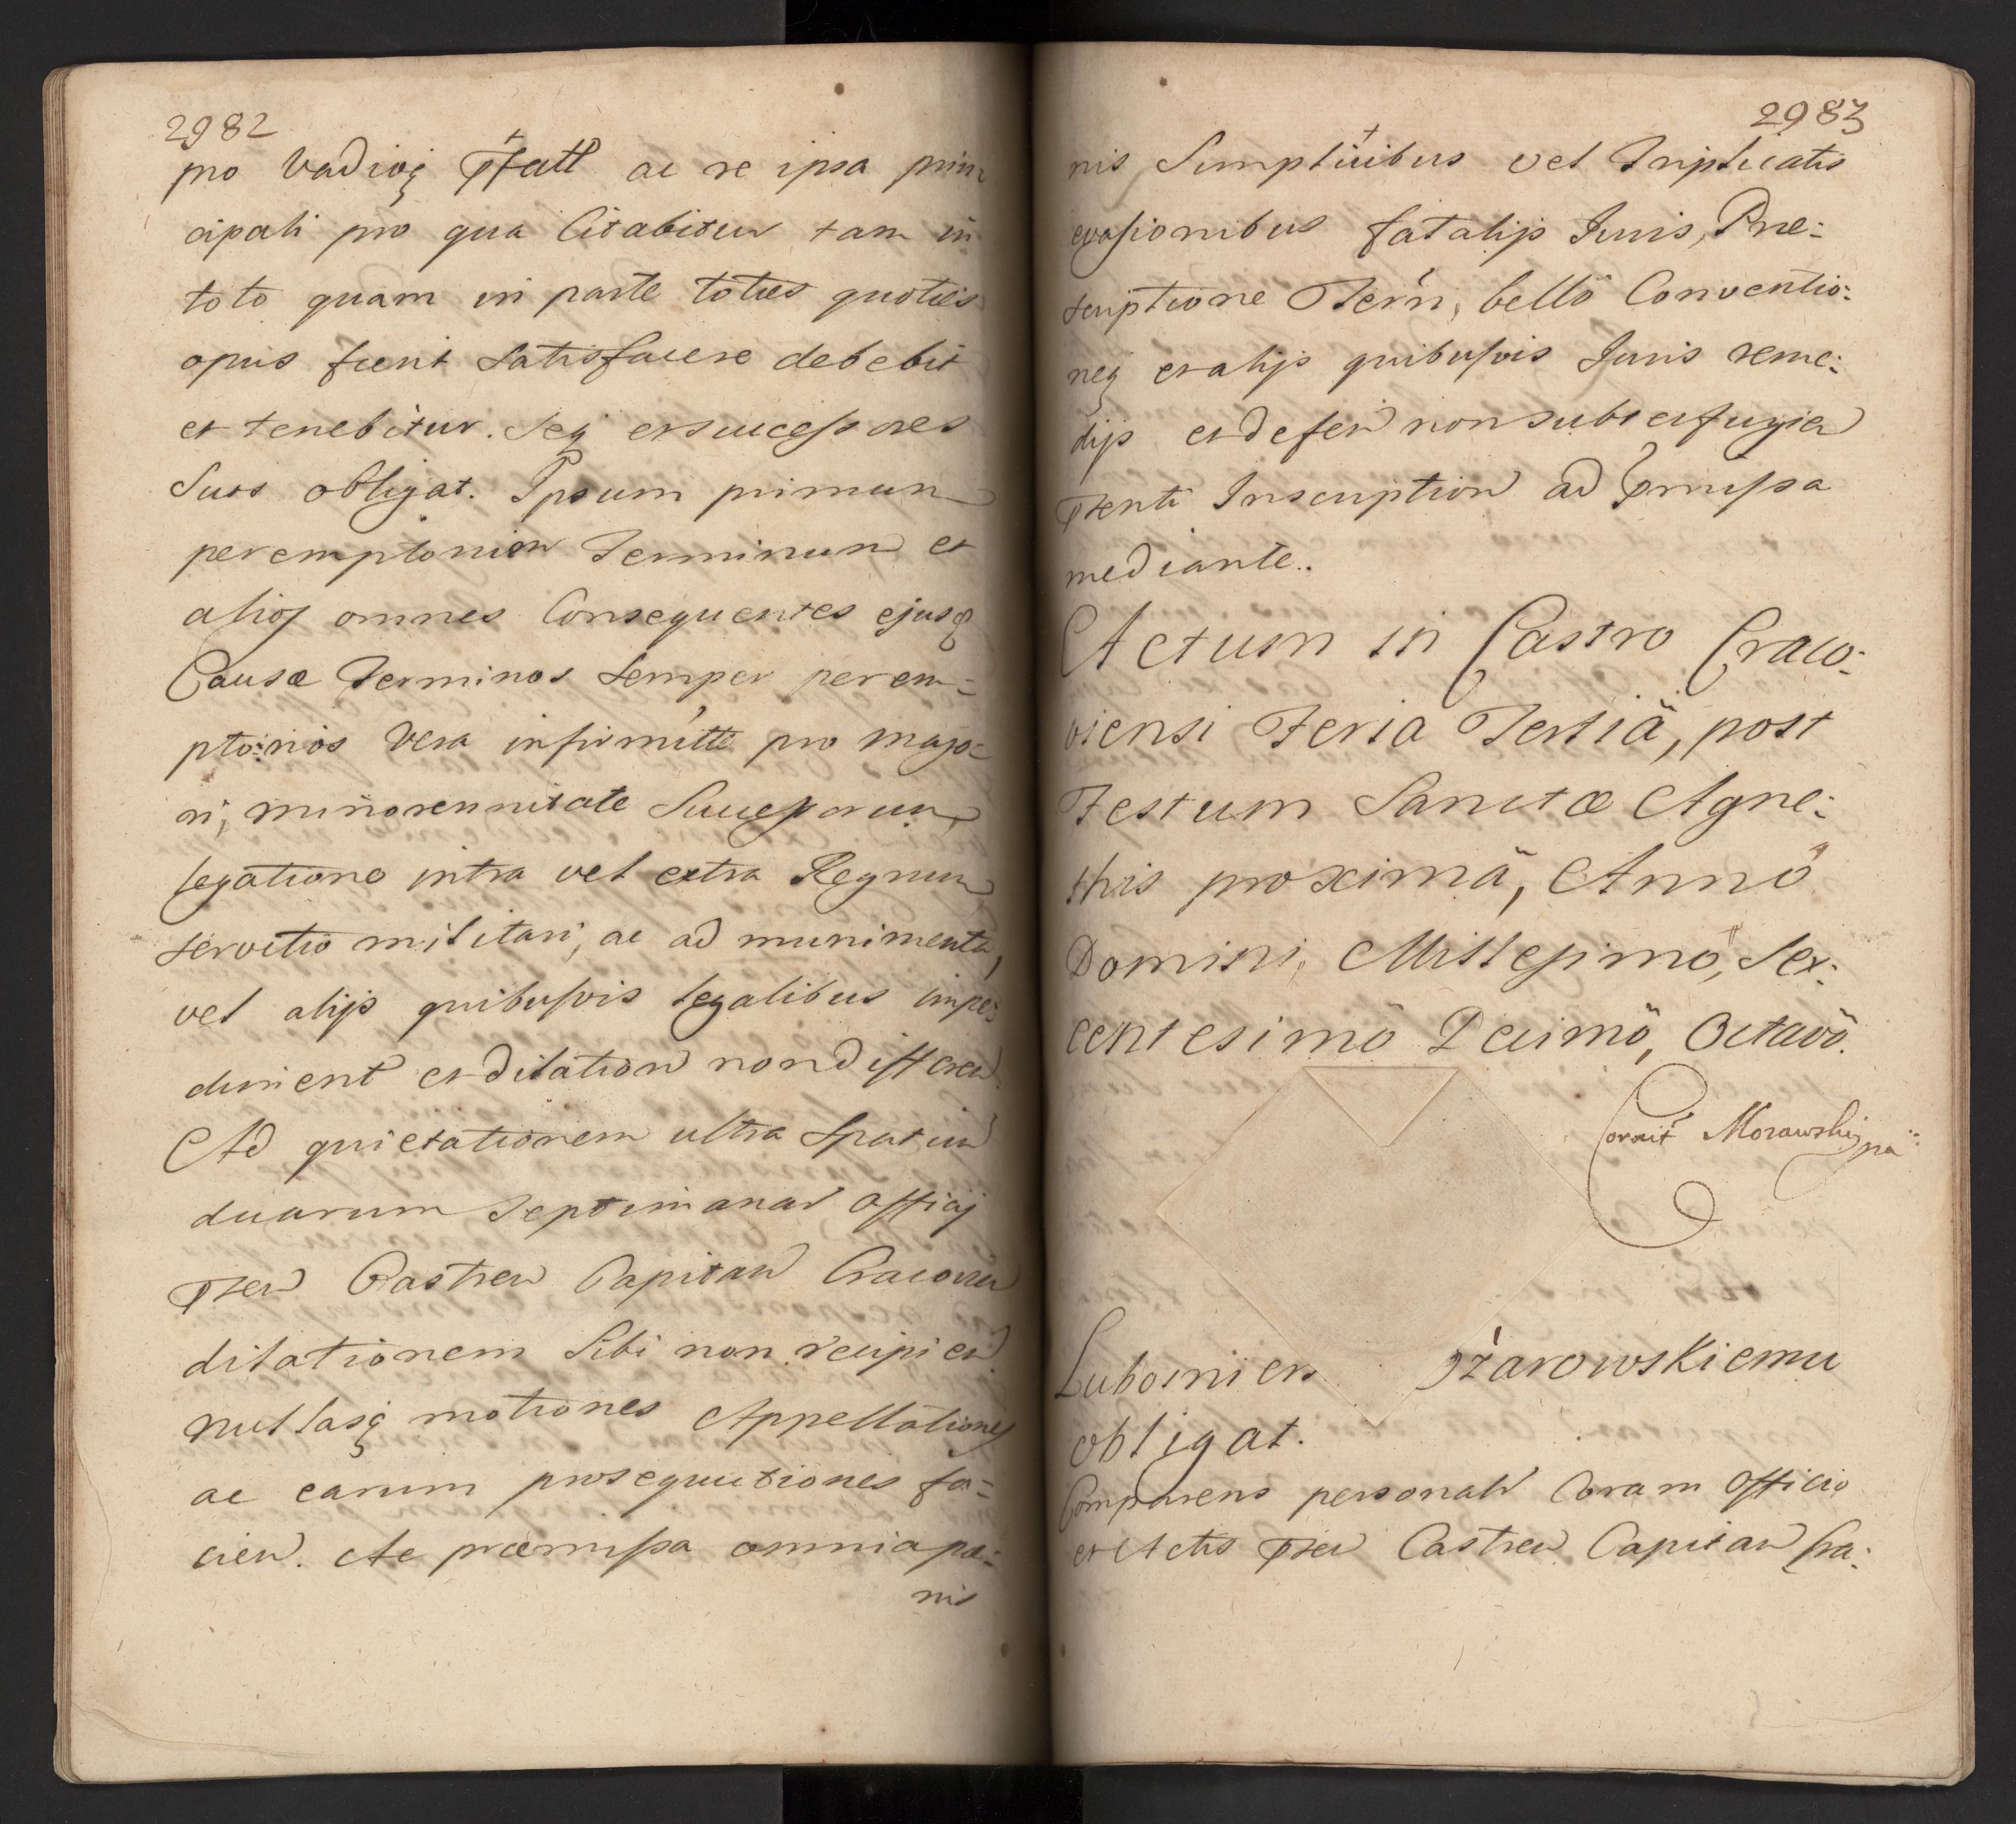 2982
pro Vadioq Pfatt ac re ipsa prin
cipali pro qua Citabitur tam in
toto quam in parte toties quoties
opus fuerit satisfacere debebit
et tenebitur. Seq et successores
Suos obligat. Ipsum primum
peremptorium Terminum et
alios omnes Consequentes ejusq
Causæ Terminos semper perem=
ptorios Vera infirmitte pro majo=
ri, minorennitate Successorum
legatione intra vel extra Regnum
servitio militari, ac ad munimenta,
vel alijs quibusvis legalibus impe:
dimenť et dilation non differen
Ad quietationem ultra Spatium
duarum Septimanar Officij
Pren Castren Capitan Cracovien
dilationem Sibi non recipien
nullasq motiones Appellationes
ac earum prosequutiones fa=
cien. Ac præmissa omnia pæ:
nis
2983
nis Sumptuibus vel Triplicatis
evasionibus fatalijs Juris, Præ:
scriptione Terrn, bello Conventio:
neq et alijs quibusvis Juris reme:
dijs et defen non subterfugien
Psenti Inscription ad Pmissa
mediante..
Actum in Castro Craco:
viensi Feria Tertiâ, post
Festum Sanctæ Agne:
this proximâ, Annô
Domini, Millesimô, Sex:
centesimô Decimô, Octavô.
Morawski
Ożarowskiemu
obligat.
Comparens personalr Coram Officio
et Actis Pren Castren Capitan Cra: